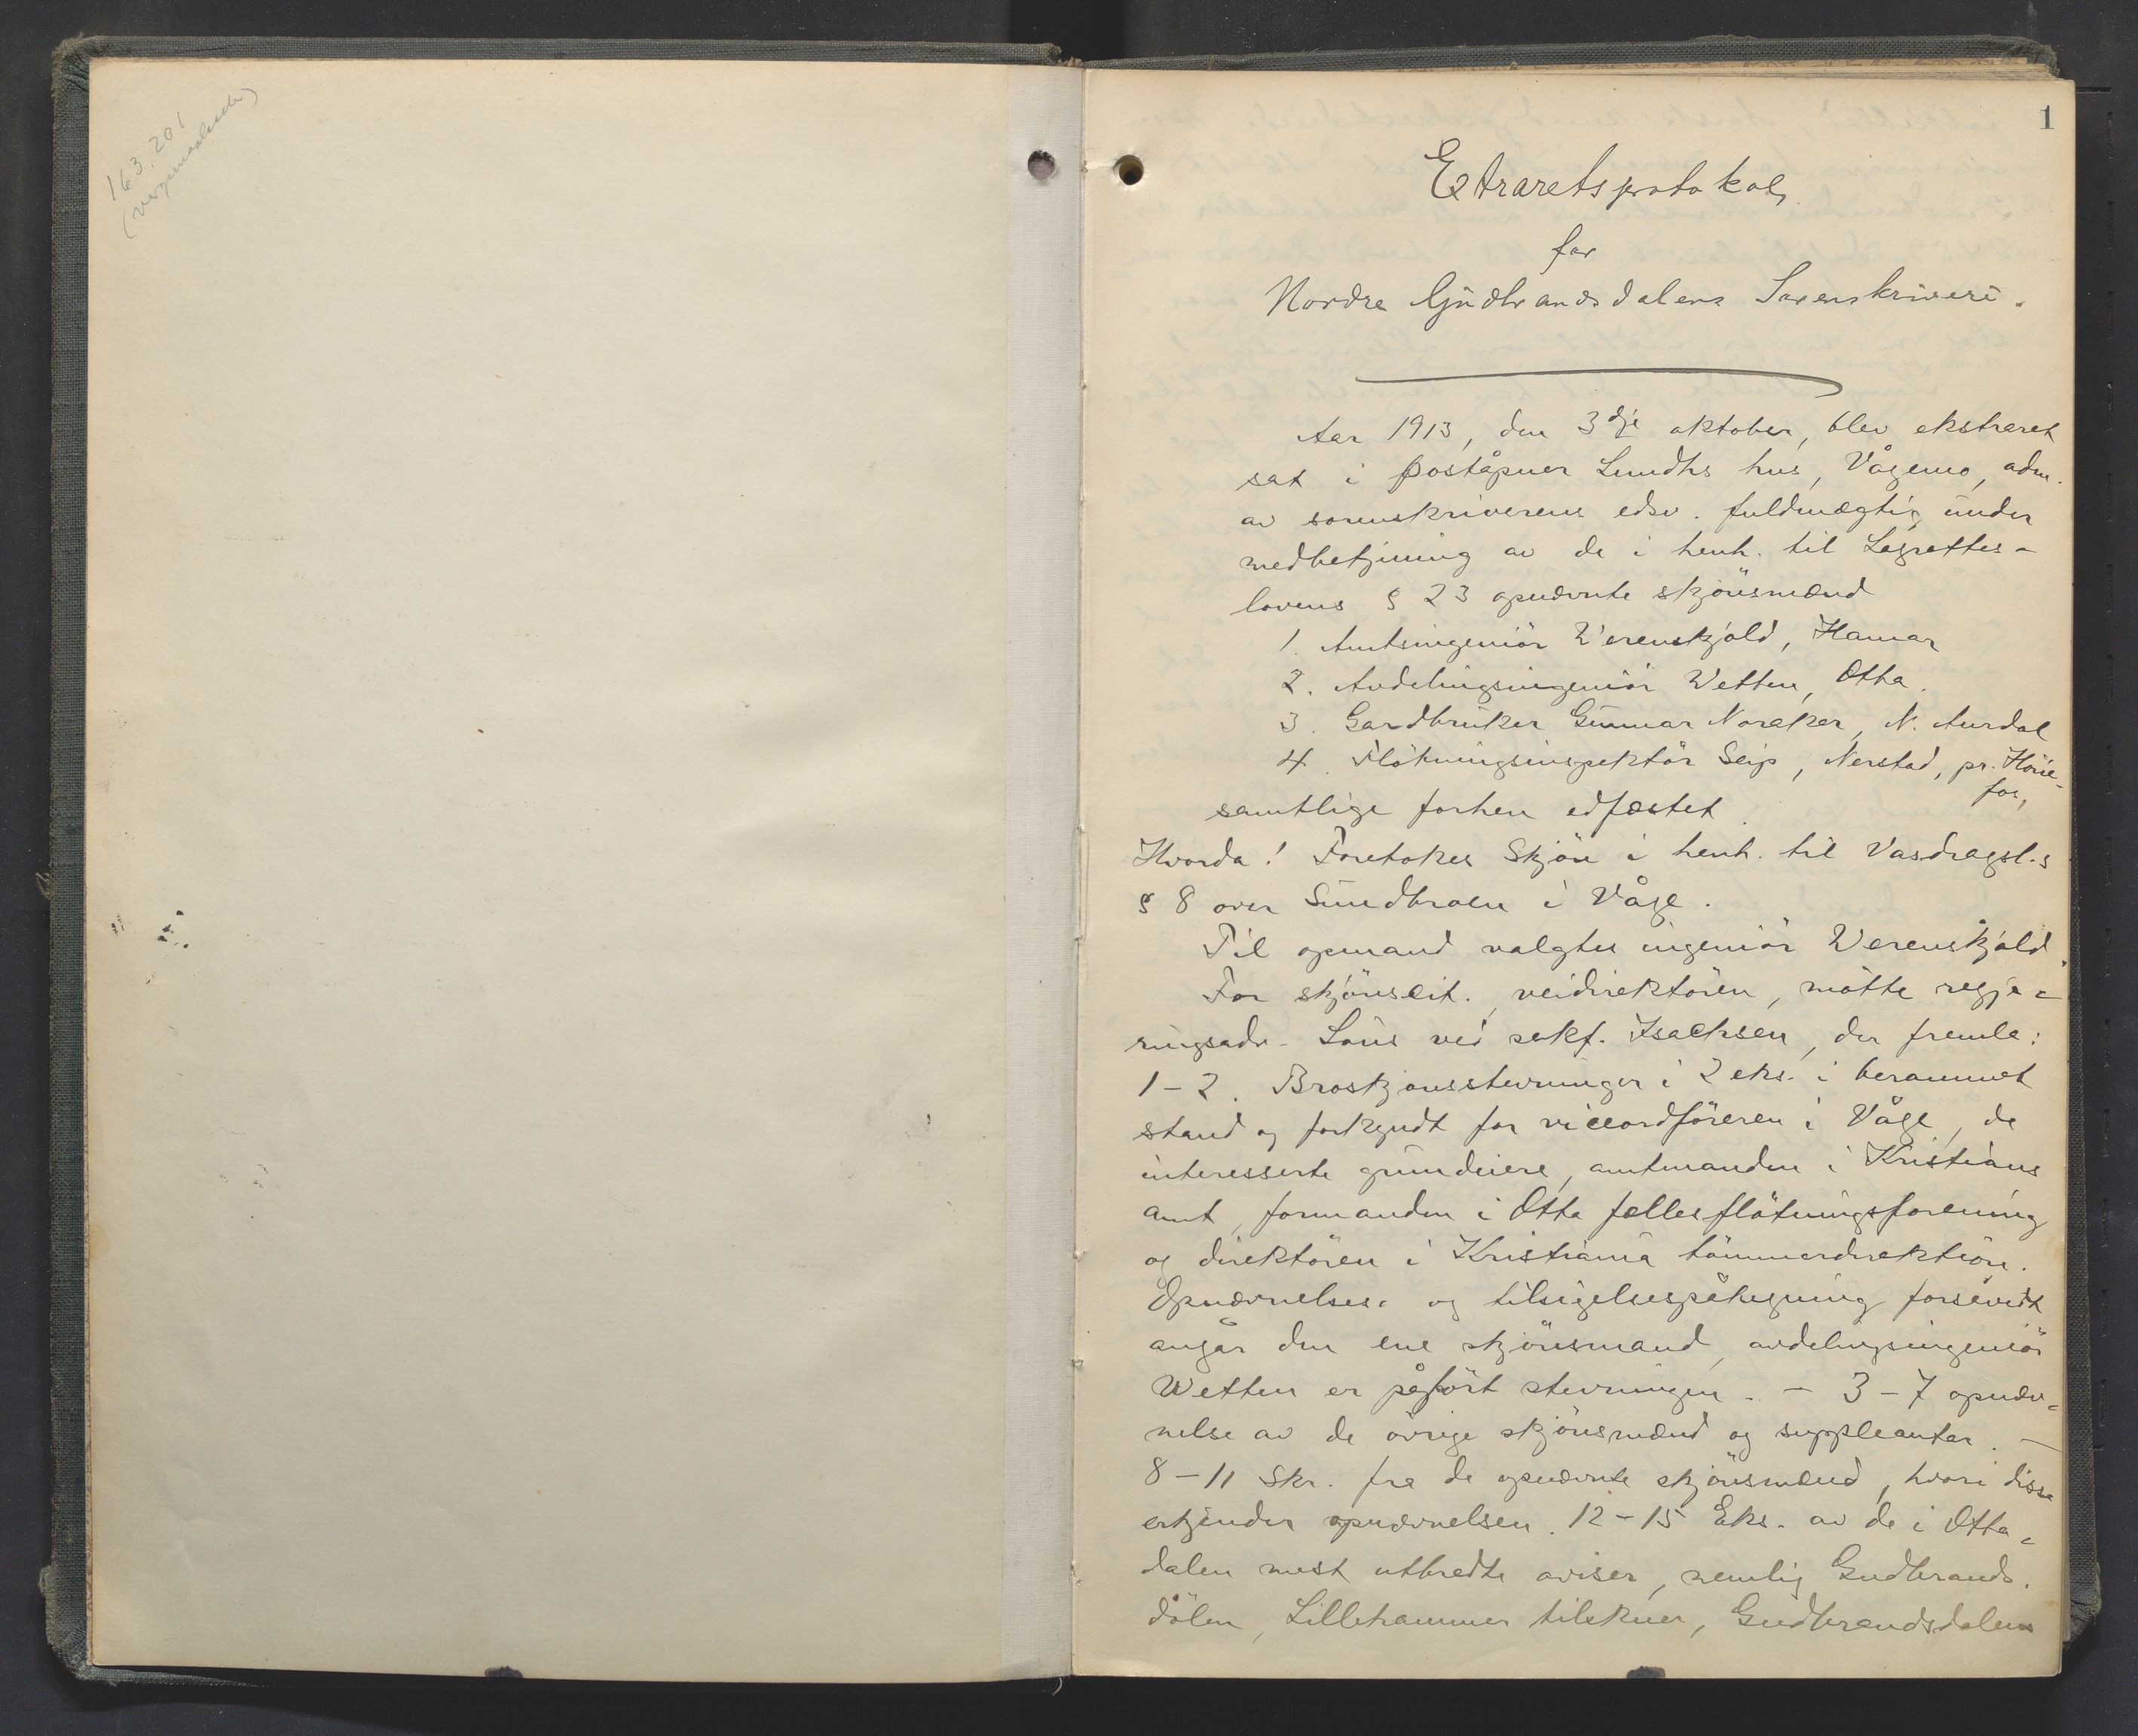 163, 201
1
Extraretsprotokol
for
Nordre Gudbrandsdalens Sorenskriveri.
Aar 1913, den 3dje oktober, blev ekstraret
sat i poståpner Lundhs hus, Vågemo, adm.
av sorenskriverens edsv. fuldmægtig under
medbetjening av de i henh. til Lagrettes-
lovens § 23 opnævnte skjönsmænd
1. Amtsingeniör Werenskjold, Hamar
2. Avdelingsingeniör Wetten, Otta.
3. Gardbruker Gunnar Noraker, N. Aurdal
4. Flötningsinspektör Seip, Nerstad, pr. Höne-
fos,
samtlige forhen edfæstet.
Hvorda! Foretokes Skjön i henh. til Vasdragsl.s
§ 8 over Sundbroen i Våge.
Til opmand valgtes ingeniör Werenskjold.
For skjönscit., veidirektören, mötte regje-
ringsadv. Lous ved sakf. Isachsen, der fremla:
1-2. Broskjönsstevninger i 2 eks. i berammet
stand og forkyndt for viceordföreren i Våge, de
interesserte grundeiere, amtmanden i Kristians
amt, formanden i Otta fellesflötningsforening
og direktören i Kristiania tömmerdirektion.
Opnævnelses- og tilsigelsespåtegning forsåvidt
angår den ene skjönsmand, avdelingsingeniör
Wetten er påfört stevningen. - 3-7 opnæv-
nelse av de övrige skjönsmænd og suppleanter. -
8-11 Skr. fra de opnævnte skjönsmænd, hvori disse
erkjender opnævnelsen. 12-15 Eks. av de i Otta-
dalen mest utbredte aviser, nemlig Gudbrands-
dölen, Lillehammer tilskuer, Gudbrandsdalens